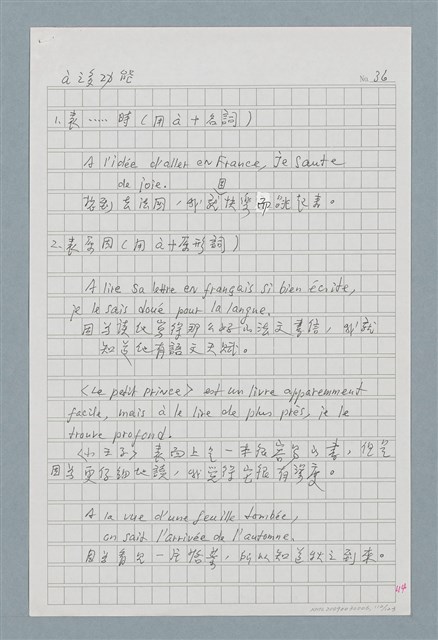 à 之多功能
No. 36
1. 表 ..... 時 ( 用 à + 名詞 )
A l'idée d'aller en France, je saute
de joie.
想到去法國,我就快樂而跳起來。
2. 表原因 ( 用 à + 原形詞 )
A lire sa lettre en français si bien écrite,
je le sais doué pour la langue.
因為讀他寫得那么好的法文書信,我就
知道他有語文天賦。
<Le petit prince> est un livre apparemment
facile, mais à le lire de plus près, je le
trouve profond.
<小王子> 表面上是一本很容易的書,但是
因為更仔細地讀,我覺得它很有深度。
A la vue d'une feuille tombée,
on sait l'arrivée de l'automne.
因為看見一片落葉,所以知道秋之到來。